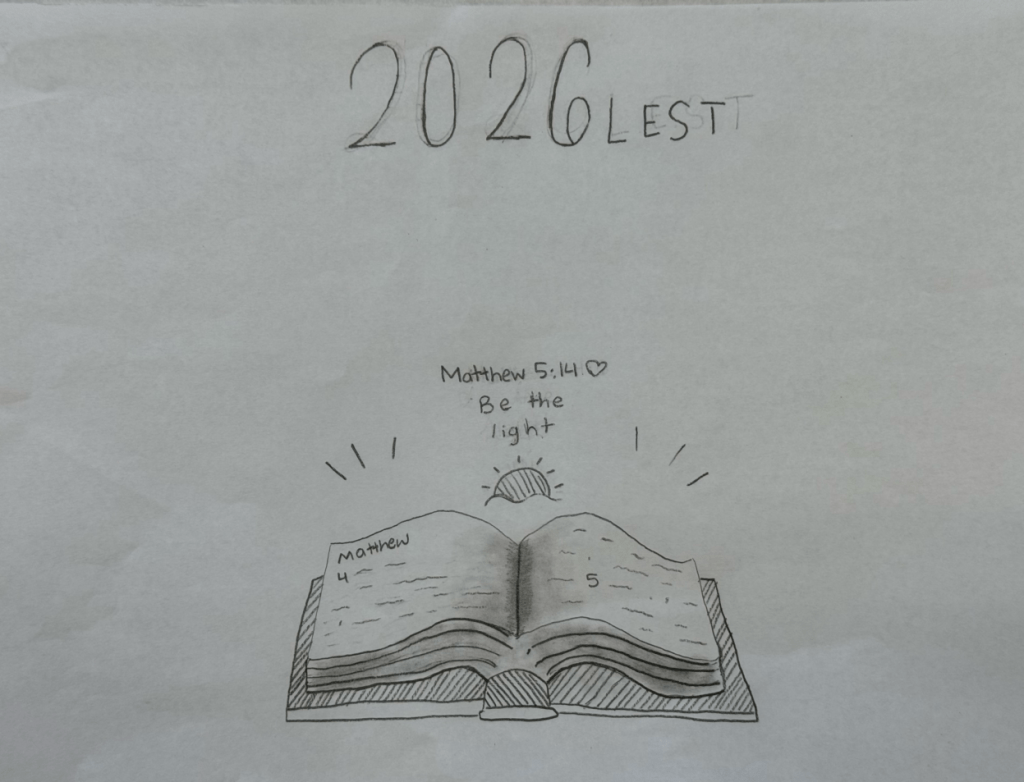 2026 LEST
Matthew 5:14 ♡
Be the
light
Matthew
4
5